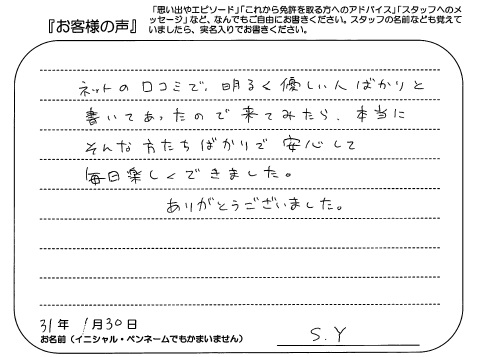 『お客様の声』
「思い出やエピソード」「これから免許を取る方へのアドバイス」「スタッフへのメ
ッセージ」など、なんでもご自由にお書きください。スタッフの名前なども覚えて
いましたら、実名入りでお書きください。
ネットの口コミで、明るく優しい人ばかりと
書いてあったので来てみたら、本当に
そんな方たちばかりで安心して
毎日楽しくできました。
ありがとうございました。
31年 1月30日
お名前（イニシャル・ペンネームでもかまいません） S.Y